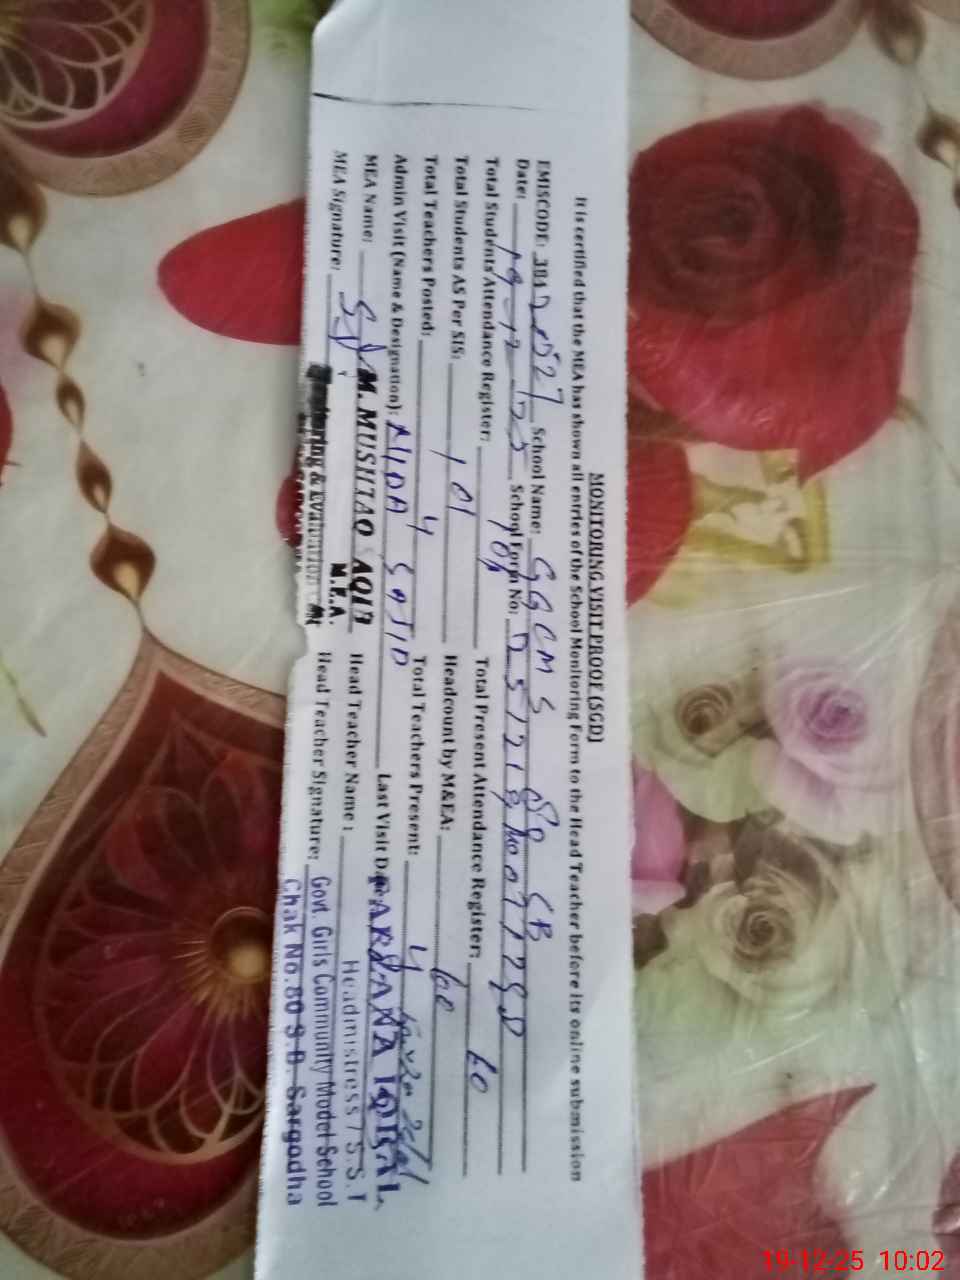 MONITORING VISIT PROOF (SGD)
It is certified that the MEA has shown all entries of the School Monitoring Form to the Head Teacher before its online submission
EMISCODE: School Name: GGCMS 80 SB
Date: 19-12-25 School Form No:
Total Students' Attendance Register: 101 Total Present Attendance Register: 60
Total Students AS Per SIS: 101 Headcount by M&EA: 60
Total Teachers Posted: 4 Total Teachers Present: 4
Admin Visit (Name & Designation): NIDA SAJID Last Visit Date:
MEA Name: M. MUSHTAQ SAQIB Head Teacher Name: FARZANA IQBAL
M.E.A. Headmistress / S.S.T
MEA Signature: Monitoring & Evaluation Head Teacher Signature: Govt. Girls Community Model School
Chak No.80 S.B. Sargodha
19-12-25 10:02